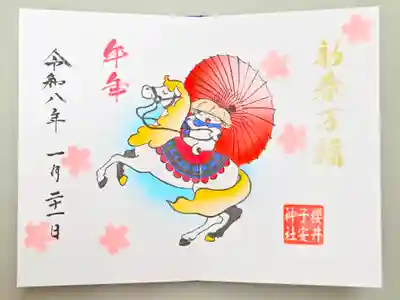 初春万福
午年
令和八年 一月二十一日
櫻井
子安
神社